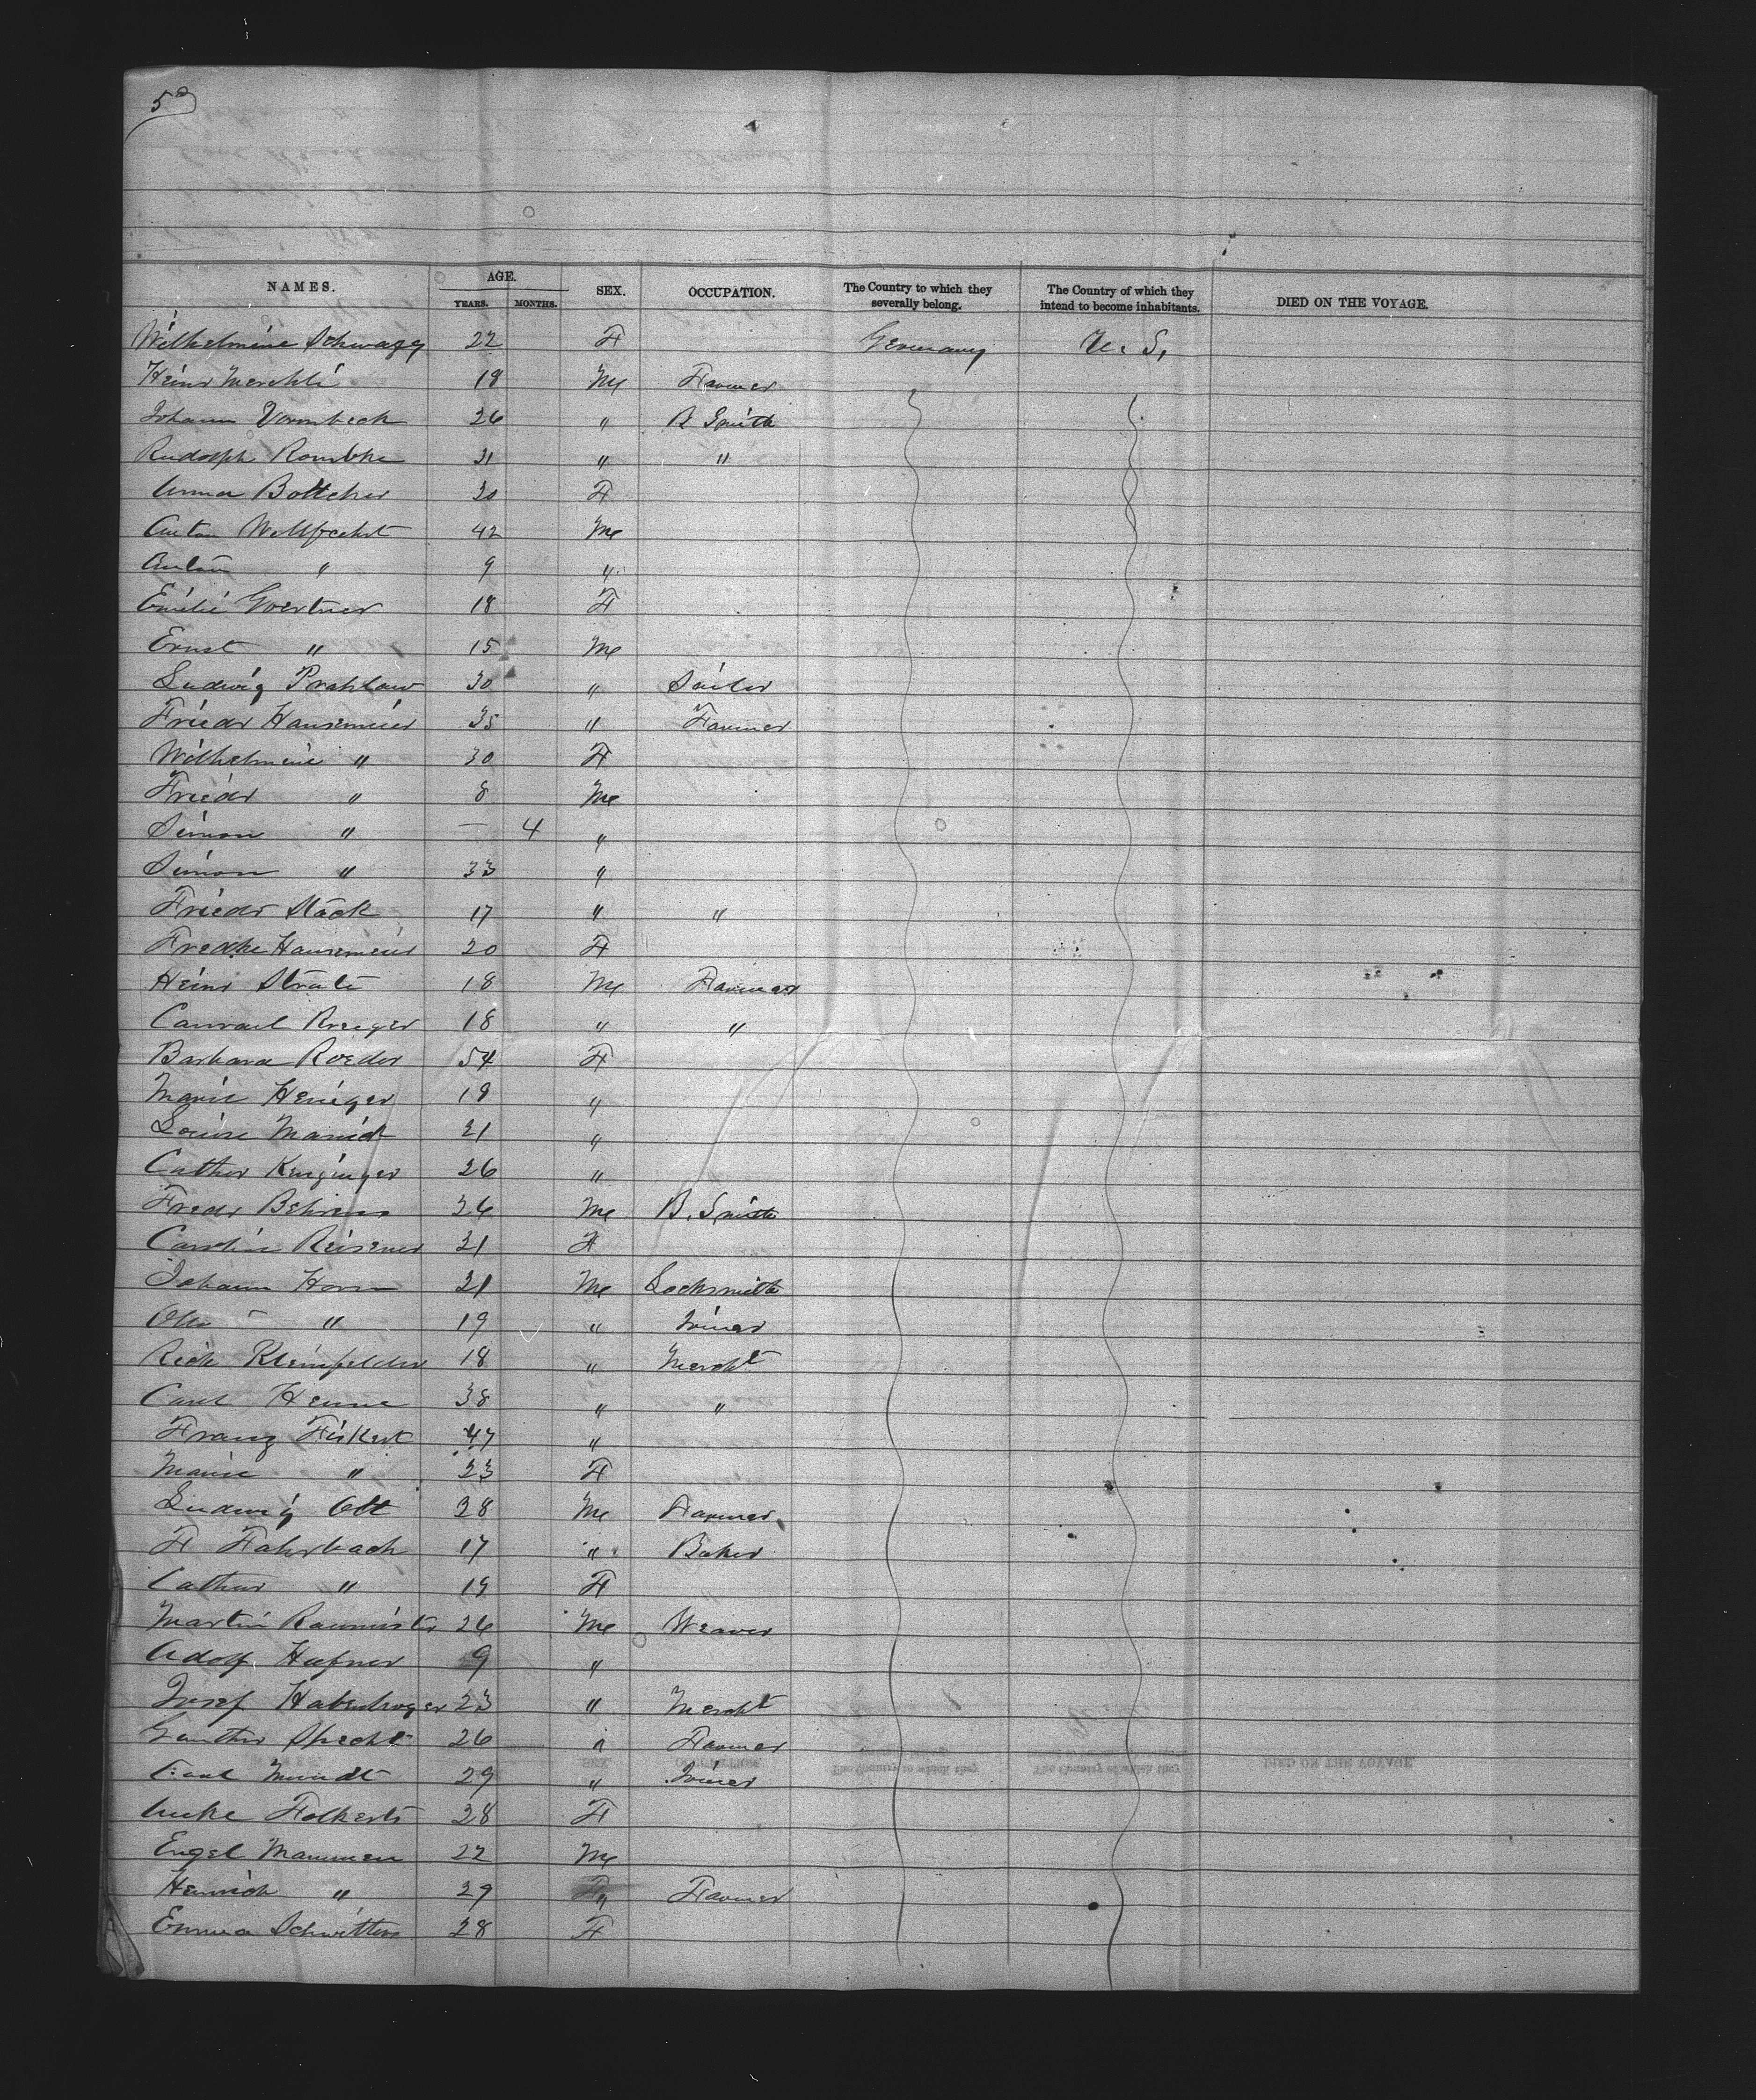 5
NAMES. AGE. YEARS. MONTHS. SEX. OCCUPATION. The Country to which they severally belong. The Country of which they intend to become inhabitants. DIED ON THE VOYAGE.
Wilhelmine Schwagg 22 F Germany U. S.
Heinr Merchli 18 M Farmer
Johann Vornbeck 26 " B Smith
Rudolph Rombke 31 " "
Anna Bottcher 30 F
Anton 42 M
Anton " 9 "
Emilie Goertner 18 F
Ernst " 15 M
Ludwig Prahlaw 30 " Sailor
Friedr Hansemeier 35 " Farmer
Wilhelmine " 30 F
Friedr " 8 M
Simon " — 4 "
Simon " 33 "
Friedr Stack 17 " "
Fredke Hansemeier 20 F
Heinr Strate 18 M Farmer
Conrad Krueger 18 " "
Barbara Roeder 54 F
Marie Heniger 18 "
Louise 21 "
Cathr 26 "
Fredr Behrens 26 M B. Smith
Caroline Reisener 21 F
Johann Horn 21 M Locksmith
Otto " 19 " Joiner
Rich Kleinfelder 18 " Mercht
Carl Henne 38 " "
Franz Fickert 47 "
Marie " 23 F
Ludwig Ott 28 M Farmer
F Fahrbach 17 " Baker
Cathar " 19 F
Martin 26 M Weaver
Adolf Hafner 9 "
Josef 23 " Mercht
Gunther Specht 26 " Farmer
Carl Mundt 29 " Joiner
Anke Folkerts 28 F
Engel Mammen 22 M
Heinrich " 29 " Farmer
Emma Schwitters 28 F